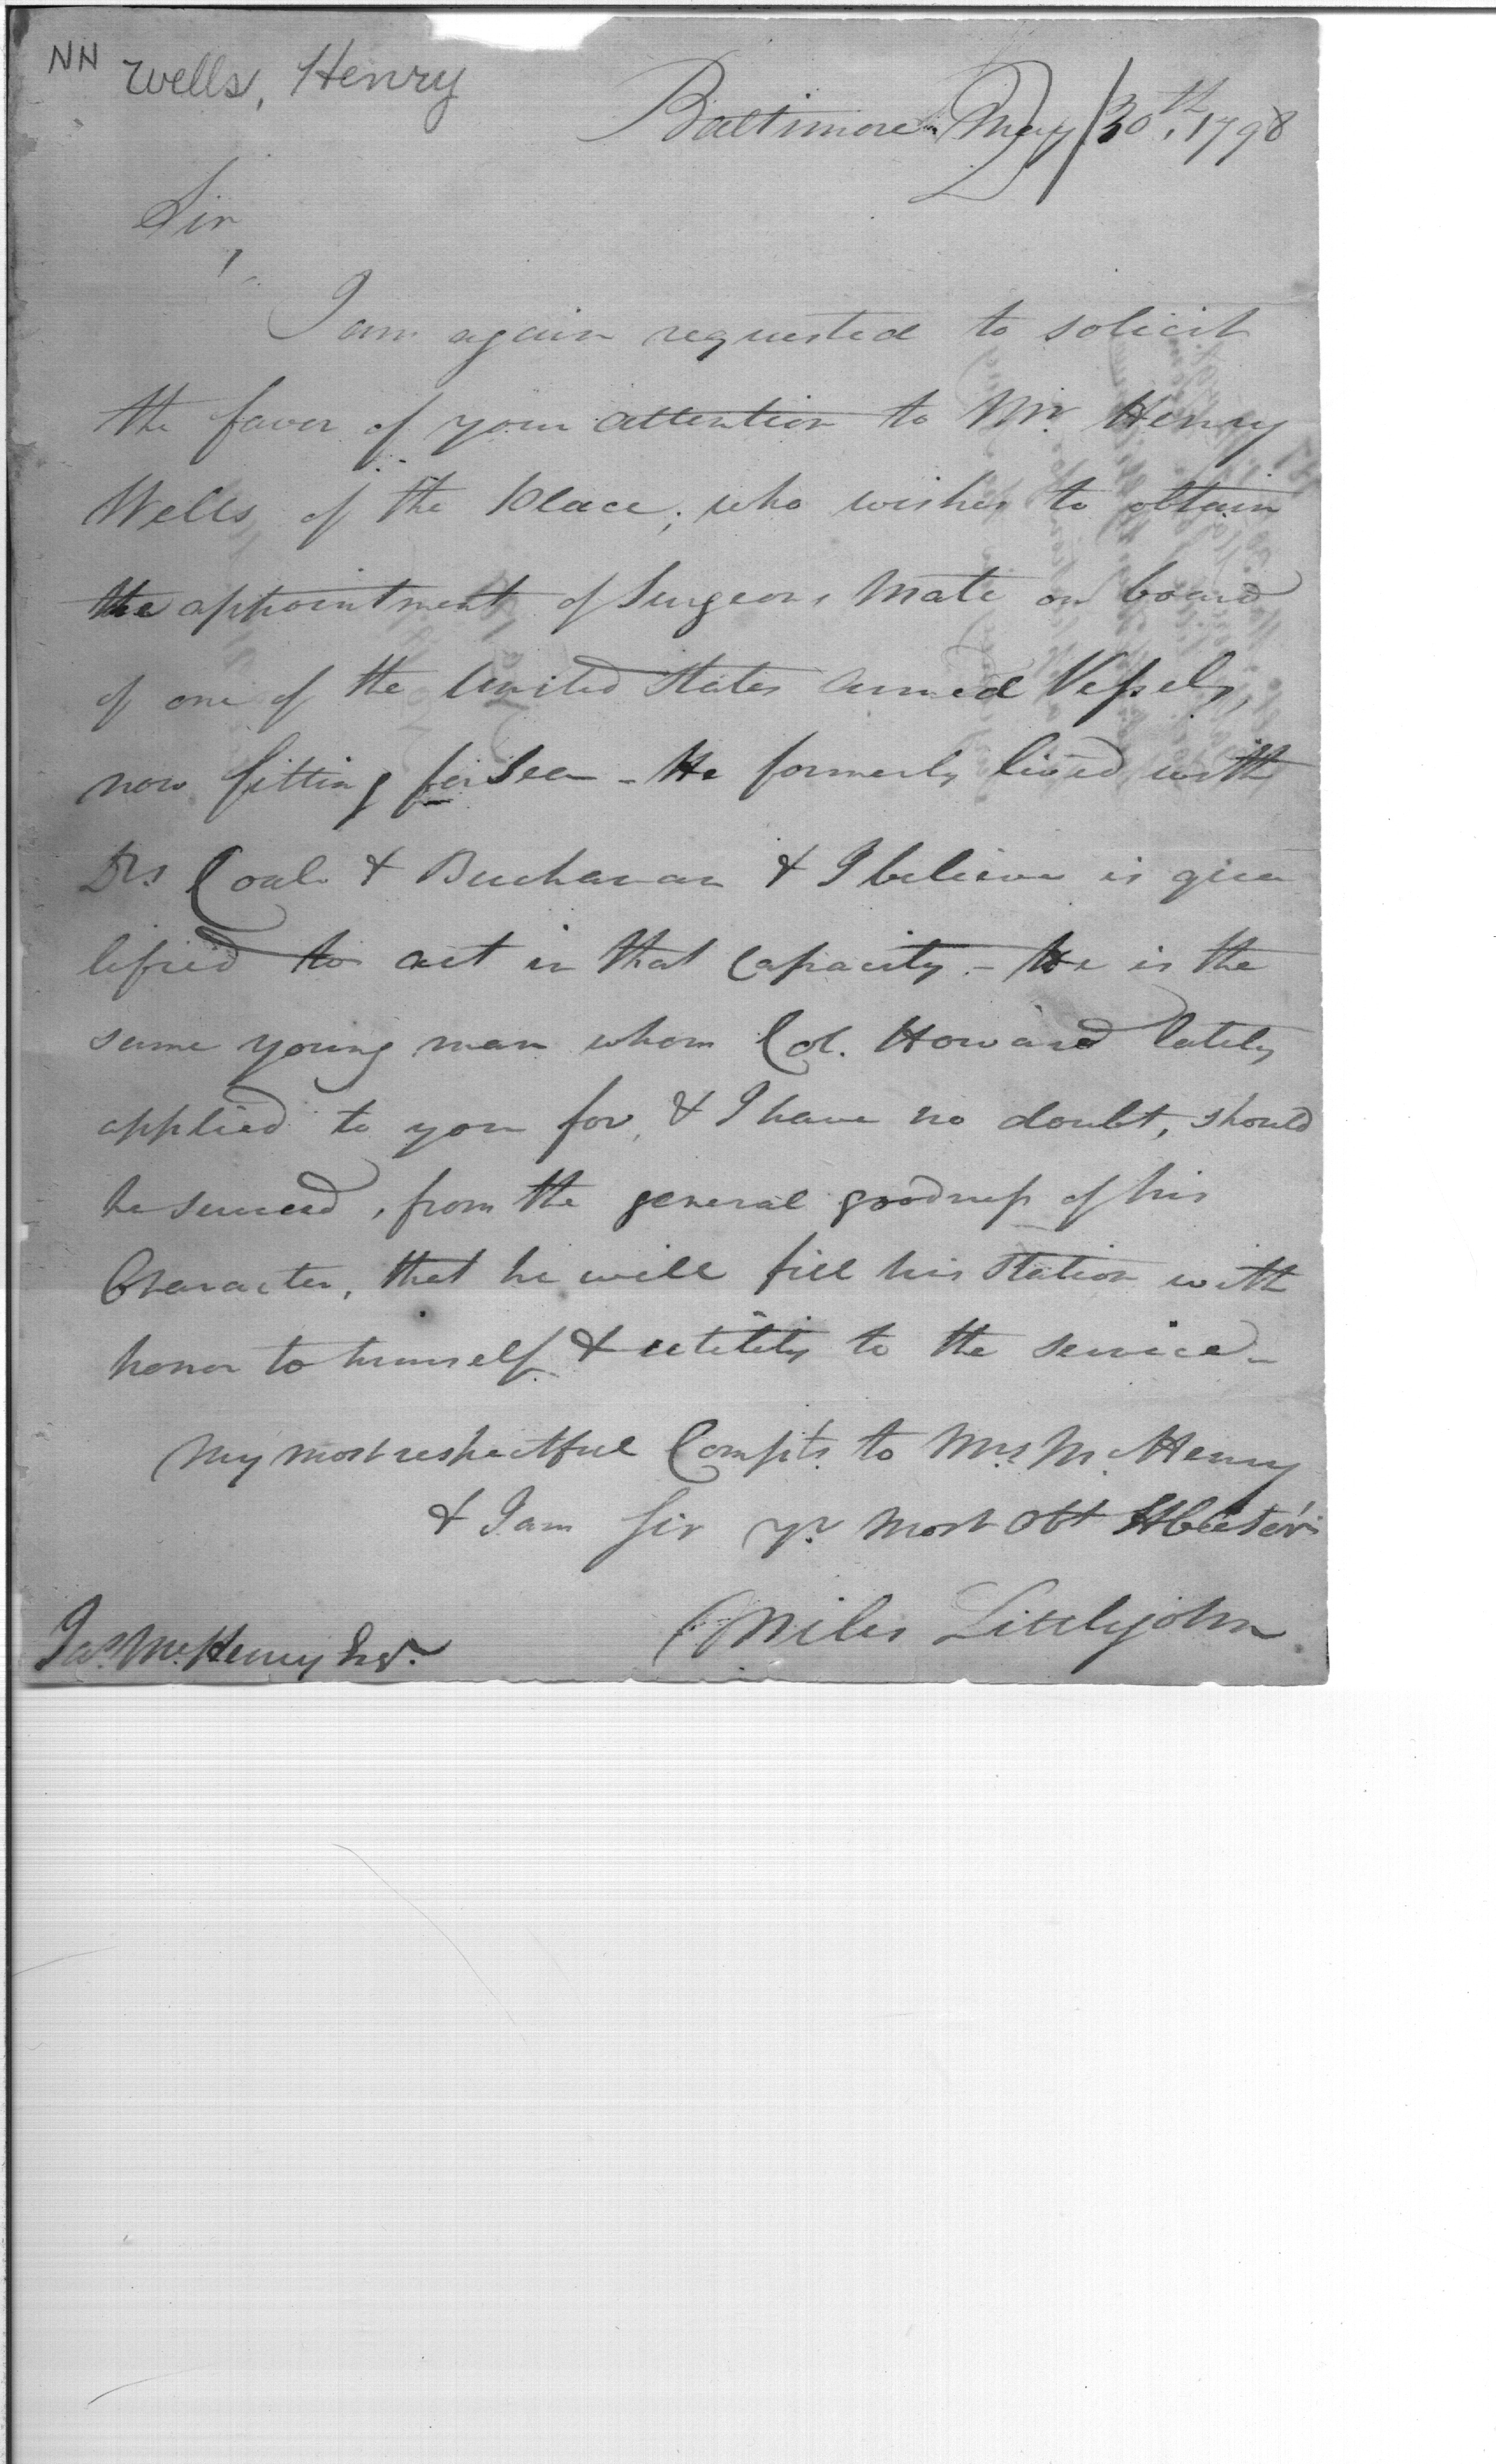 NN Wells, Henry
Baltimore May 30th. 1798
Sir,
I am again requested to solicit
the favor of your attention to Mr. Henry
Wells of the place; who wishes to obtain
the appointment of Surgeons Mate on board
of one of the United States armed Vessels,
now fitting for Sea - He formerly lived with
Drs. Coale & Buchanan & I believe is qua
lified to act in that Capacity - He is the
same young man whom Col. Howard lately
applied to you for, & I have no doubt, should
he succeed, from the general goodness of his
Character, that he will fill his Station with
honor to himself & utility to the service -
My most respectful Compts. to Mrs. McHenry
& I am Sir yr. most Obt
Miles Littlejohn
Jas. McHenry Esqr.